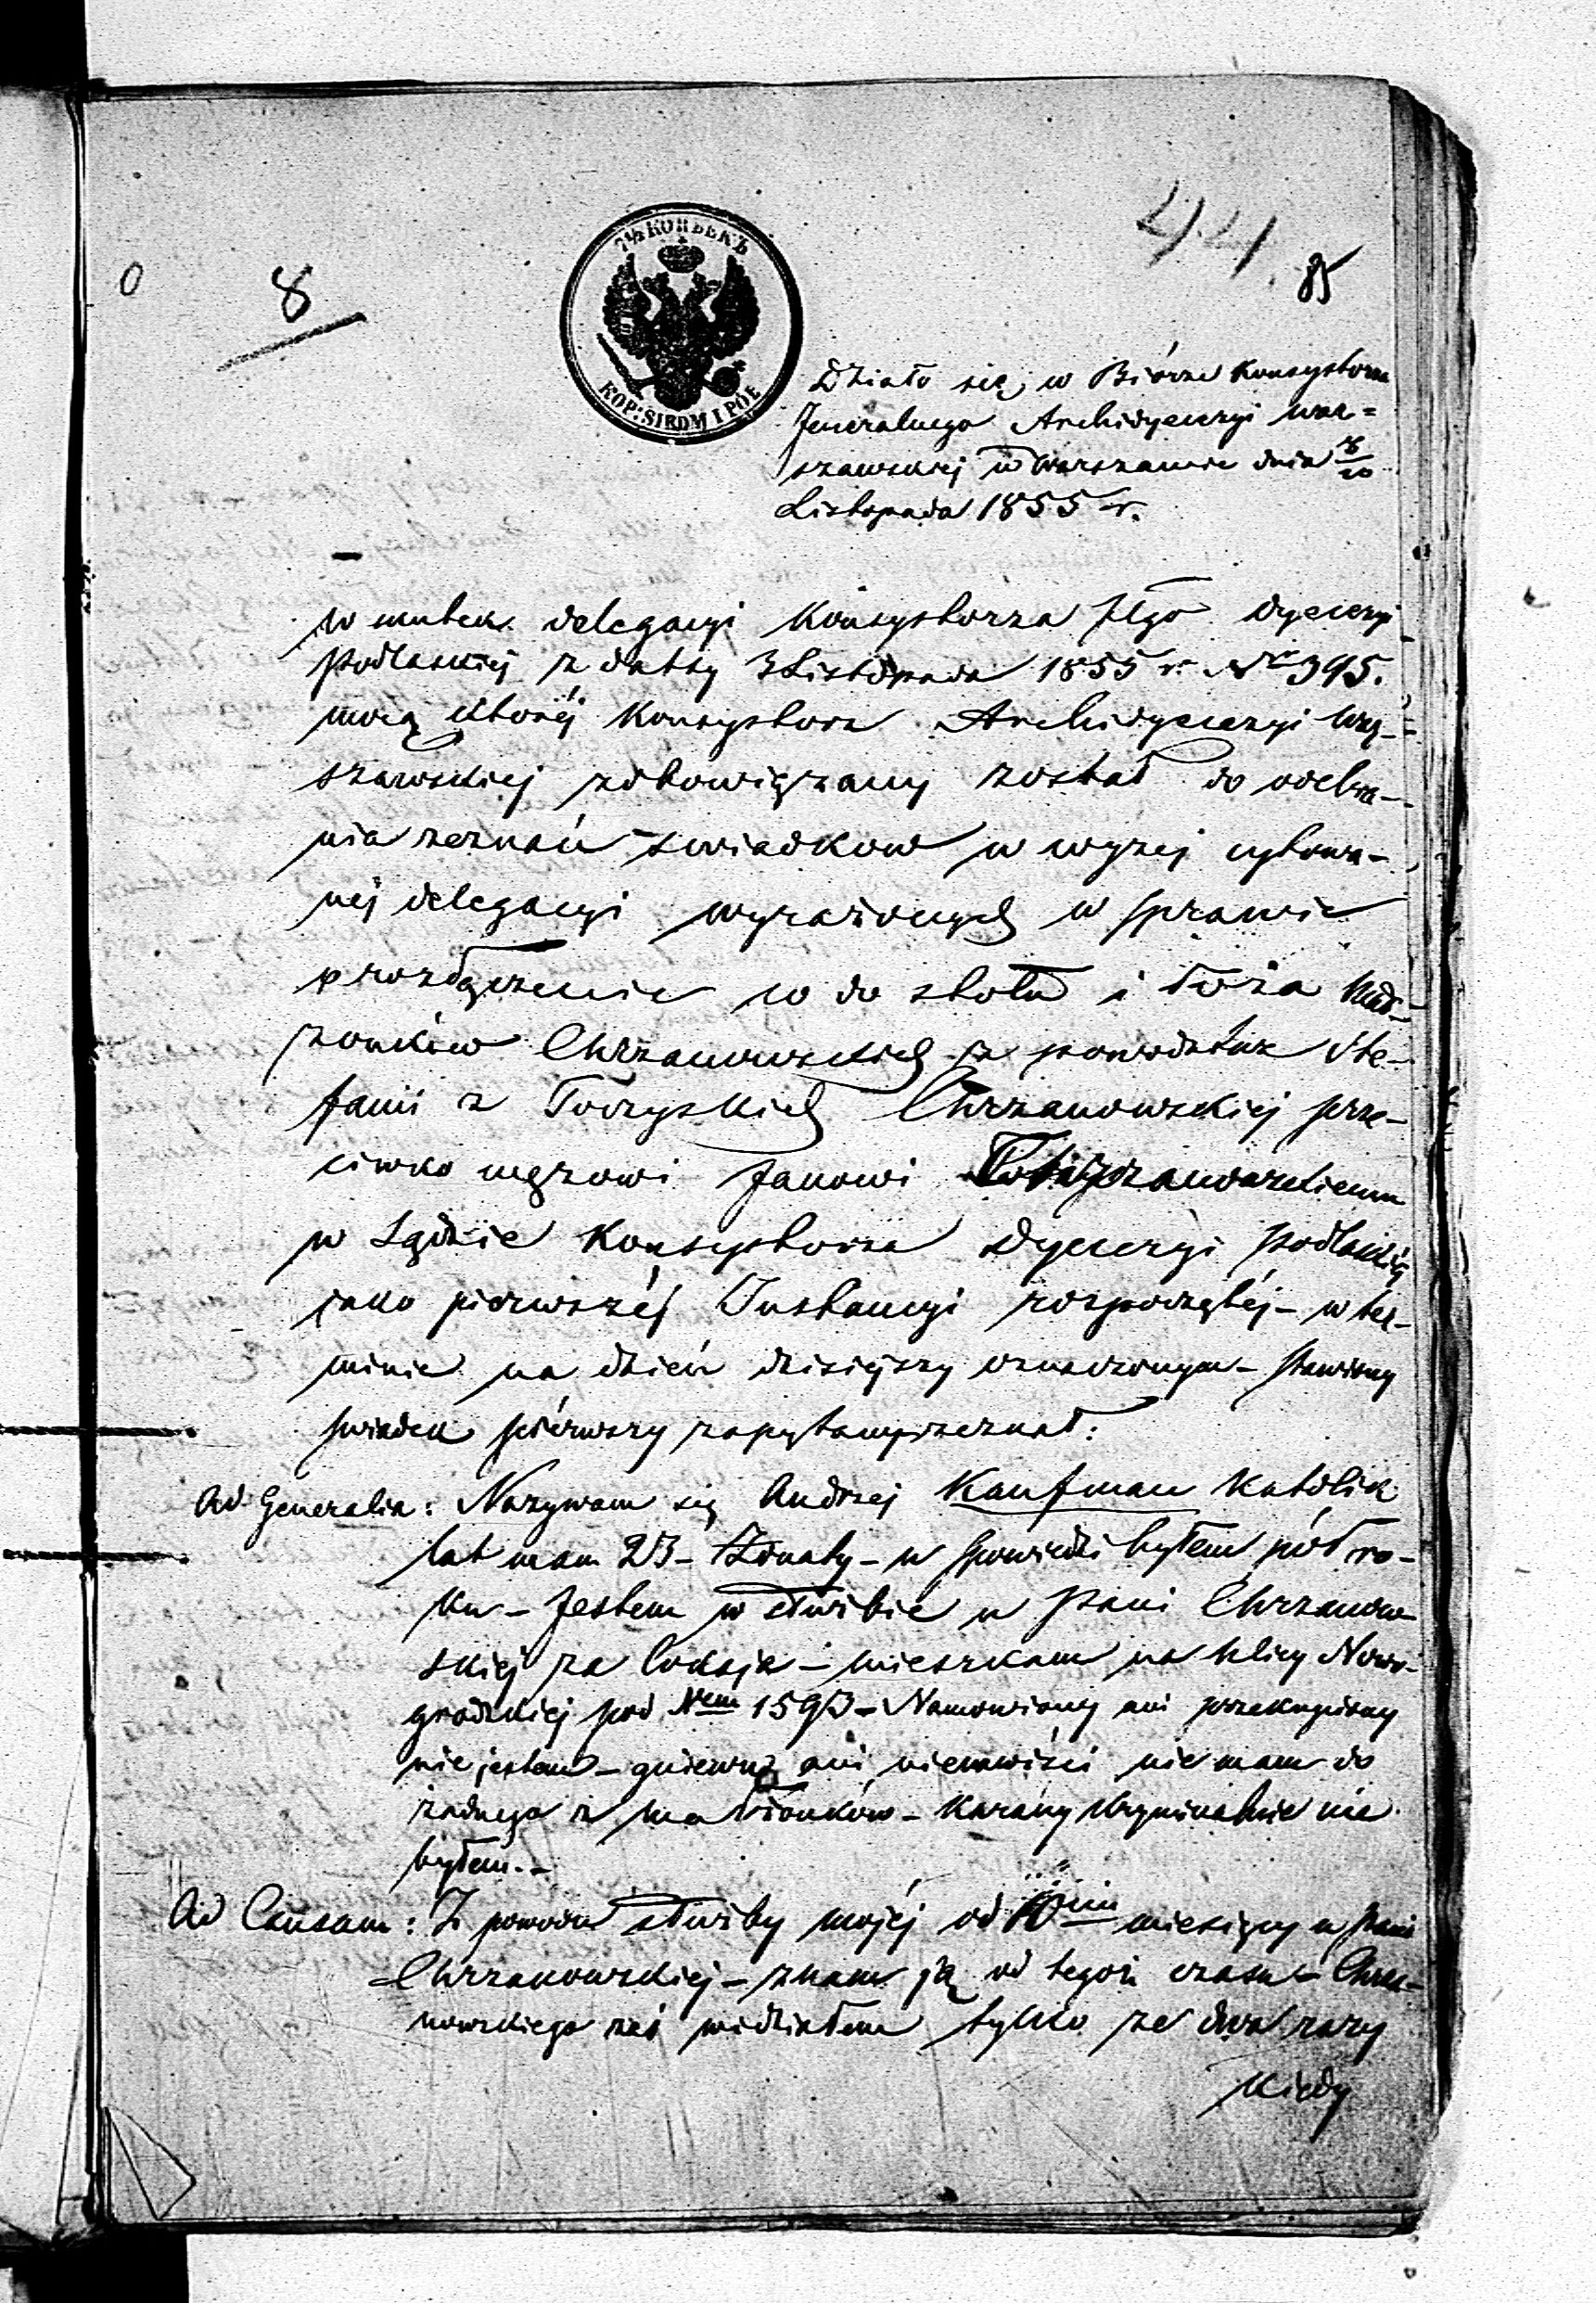 0
8
7½ КОПѢЕКЪ
KOP: SIEDM I PÓŁ
85
Działo się w Biórze Konsystorza
Jeneralnego Archidyecezyi War=
szawskiej w Warszawie dnia
Listopada 1855 r.
W skutek delegacyi Konsystorza Jlgo Dyecezyi
Podlaskiéj z daty 3 Listopada 1855 r. No 395.
mocą któréj Konsystorz Archidyecezyi War-
szawskiej zobowiązany został do odebra-
nia zeznań swiadkow w wyzej cytowa-
néj delegacyi wyrażonych w sprawie
o rozłączenie co do stołu i łoża Mał-
żonków Chrzanowskich z powodztwa Ste-
fanii z Toczyskich Chrzanowskiej prze-
ciwko mężowi Janowi Chrzanowskiemu
w Sądzie Konsystorza Dyecezyi Podlaskiéj
jako pierwszéj Instancyi rozpoczętéj - w ter-
minie na dzień dzisiejszy oznaczonym - stawiony
swiadek piérwszy zapytany zeznał:
Ad Generalia: Nazywam się Andrzej Kaufman Katolik
lat mam 23 - Żonaty - u spowiedzi byłem pół ro-
ku - Jestem w służbie u Pani Chrzanow-
skiej za lokaja - mieszkam na Ulicy Nowo-
grodzkiej pod Nem 1593 - Namowiony ani przekupiony
nie jestem - gniewu ani nienawiści nie mam do
żadnego z małżonków - Karany kryminalnie nie
byłem. -
Ad Causam: Z powodu służby mojéj od miesięcy u Pani
Chrzanowskiej - znam ją od tegoż czasu - Chrza-
nowskiego zaś widziałem tylko ze dwa razy
kiedy